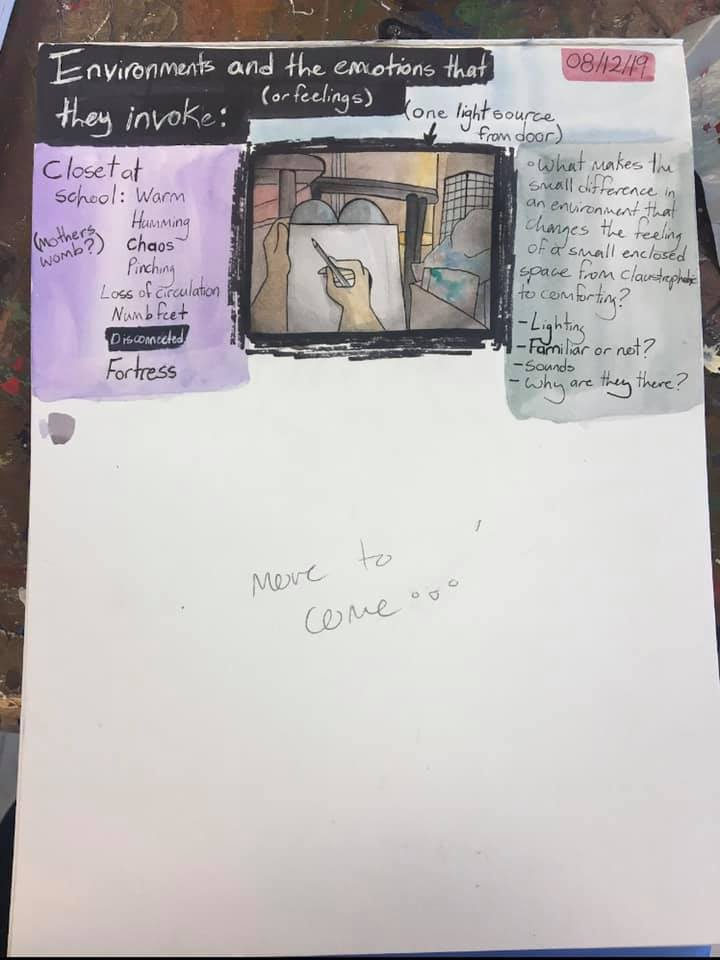 Environments and the emotions that
(or feelings)
they invoke:
08/12/19
(one light source
from door)
Closet at
school: Warm
Humming
(Mothers
womb?)
Chaos
Pinching
Loss of circulation
Numb feet
Disconnected
Fortress
• What makes the
small difference in
an environment that
changes the feeling
of a small enclosed
space from claustrophobic
to comforting?
- Lighting
- Familiar or not?
- Sounds
- Why are they there?
more to
come...